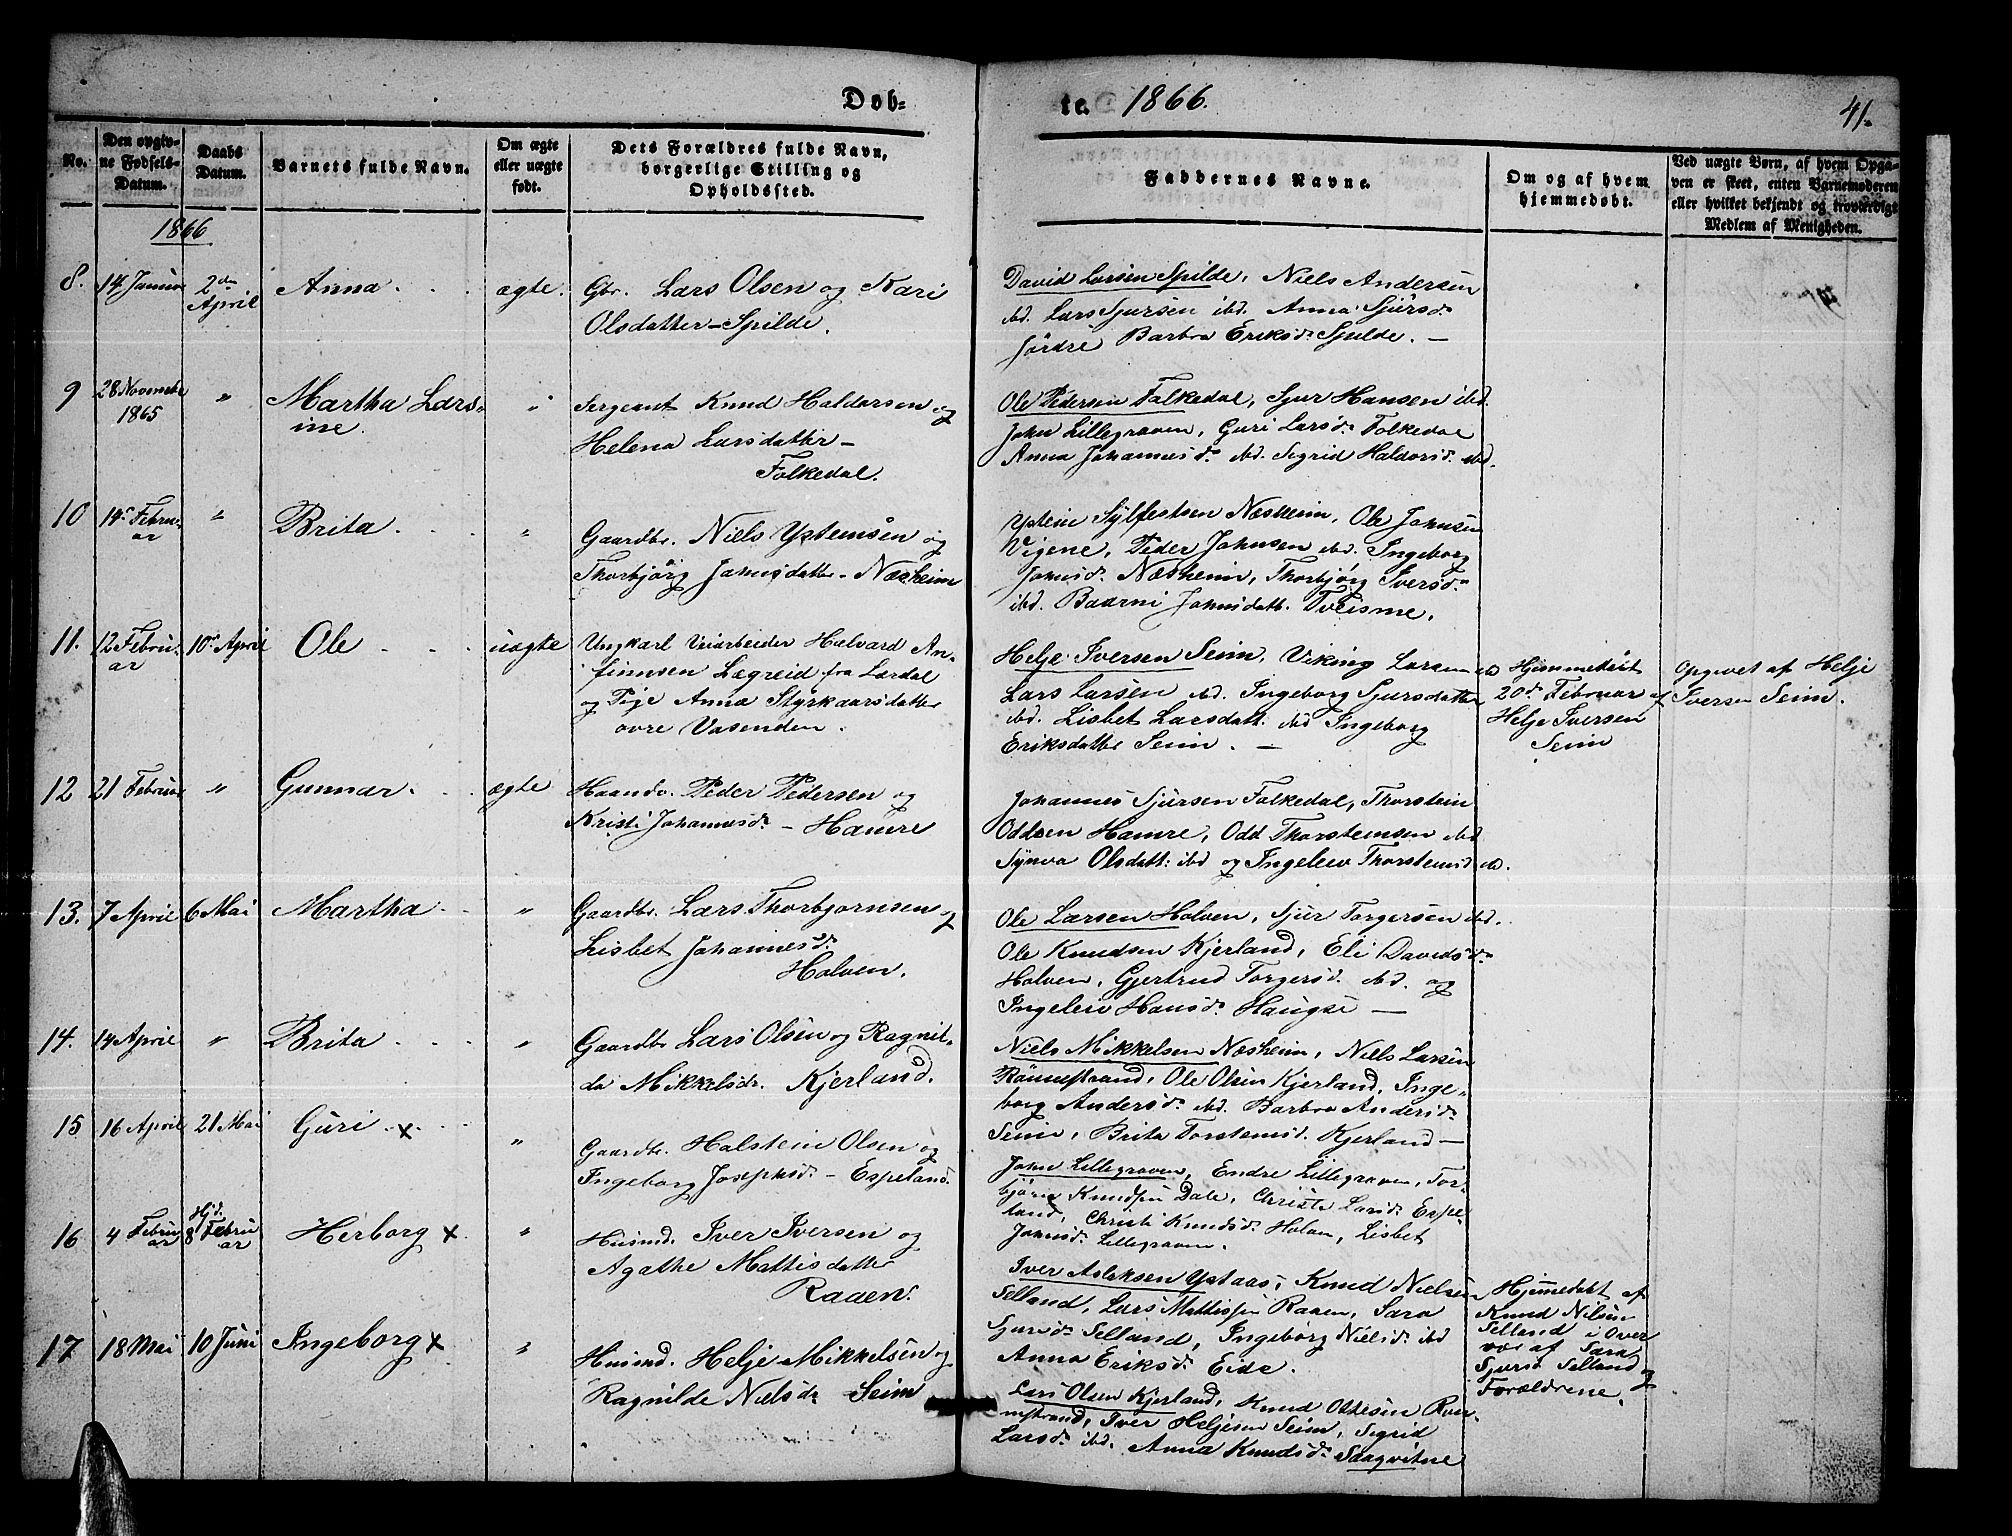 Døb-
te. 1866.
41.
No.
Den opgiv-
ne Fødsels-
Datum.
Daabs
Datum.
Barnets fulde Navn.
Om ægte
eller uægte
født.
Dets Forældres fulde Navn,
borgerlige Stilling og
Opholdssted.
Faddernes Navne.
Om og af hvem
hjemmedøbt.
Ved uægte Børn, af hvem Opga-
ven er skeet, enten Barnemoderen
eller hvilket bekjendt og troværdigt
Medlem af Menigheden.
1866
8.
14 Januar
2den
April
Anna
ægte.
Gbr. Lars Olsen og Kari
Olsdatter - Spilde.
David Larsen Spilde, Niels Andersen
ibd. Lars Sjursen ibd. Anna Sjursd.
Jördre Barbra Eriksd. Spilde. —
9
28 November
1865
"
Martha Lars-
ine.
"
Sergeant Knud Haldorsen og
Helena Larsdatter -
Folkedal.
Ole Pedersen Folkedal, Sjur Hansen ibd.
John Lillegraven, Guri Larsd. Folkedal
Anna Johannesd. ibd. Sigrid Haldorsd. ibd.
10
14 Febru-
ar
"
Brita
"
Gaardbr. Niels Ysteinsen og
Thorbjörg Johnsdatter - Næsheim
Ystein Sylfestsen Næsheim, Ole Johnsen
Vigene, Peder Johnsen ibd. Ingeborg
Johnsd. Næsheim, Thorbjörg Iversd.
ibd. Baarni Johnsdatt. Tveisme.
11.
12 Febru-
ar
10 April
Ole
uægte
Ungkarl Veiarbeider Halvard An-
finnsen Lægreid fra Lærdal
og Pige Anna Styrkaarsdatter
övre Vasenden.
Helje Iversen Seim, Viking Larsen ibd
Lars Larsen ibd. Ingeborg Sjursdatter
ibd. Lisbet Larsdatt. ibd Ingeborg
Eriksdatter Seim. —
Hjemmedöbt
20de Februar af
Helje Iversen
Seim
Opgivet af Helje
Iversen Seim.
12
21 Februar
"
Gunnar
ægte
Haandv. Peder Pedersen og
Kristi Johannesd. - Hamre
Johannes Sjursen Folkedal, Thorstein
Oddsen Hamre, Odd Thorsteinsen ibd
Synva Olsdatt: ibd og Ingeleiv Thorsteinsd. ibd.
13.
7 April
6 Mai
Martha
"
Gaardbr. Lars Thorbjørnsen og
Lisbet Johannesd.
Holven.
Ole Larsen Holven, Sjur Torgersen ibd.
Ole Knudsen Kjerland, Eli Davidsd.
Holven, Gjertrud Torgersd. ibd. og
Ingeleiv Hansd. Haugse —
14.
14 April
"
Brita
"
Gaardbr Lars Olsen og Ragnil-
da Mikkelsdr. Kjerland.
Niels Mikkelsen Næsheim, Niels Larsen
Röinestrand, Ole Olsen Kjerland, Inge-
borg Andersd. ibd. Barbra Andersd.
Seim, Brita Torsteinsd. Kjerland —
15
16 April
21 Mai
Guri x
"
Gaardbr. Halstein Olsen og
Ingeborg Josephsd. - Espeland
John Lillegraven, Endre Lillegraven, Tor-
björn Knudsen Dale, Christi Larsd. Espe-
land, Christi Knudsd. Holven, Lisbet
Johnsd. Lillegraven.
16
4 Febru
ar
Hjd.
8 Febru
ar
Herborg x
"
Husmd. Iver Iversen og
Agathe Mattisdatter
Raaen.
Iver Aslaksen Ystaas, Knud Nielsen
Selland, Lars Mattissen Raaen, Sara
Sjursd. Selland, Ingeborg Nielsd. ibd
Anna Eriksd. Eide.
Hjemedøbt af
Knud Nilsen
Selland i Over
vær af Sara
Sjursd Selland og
Forældrene.
17
18 Mai
10 Juni
Ingeborg x
"
Husmd. Helje Mikkelsen og
Ragnilde Nielsdr. Seim
Lars Olsen Kjerland, Knud Ottesen Røn-
nestrand, Iver Heljesen Seim, Sigrid
Larsd. ibd. Anna Knudsd. Saaqvitne